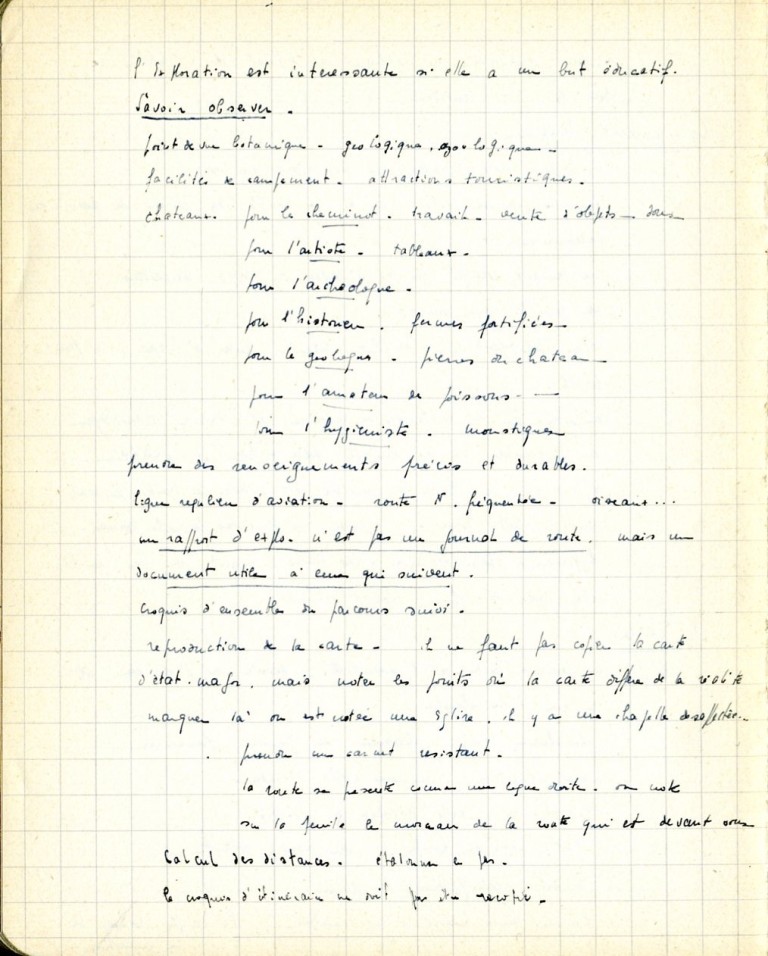 l'Exploration est interessante si elle a un but éducatif.
Savoir observer.
point de vue botanique - geologique, zoologique -
facilités de campement - attractions touristiques.
chateaux. pour le cheminot. travail - vente d'objets - dons
pour l'artiste - tableaux.
pour l'archeologue.
pour l'historien. fermes fortifiées
pour le geologue. pierres du chateau
pour l'amateur de poissons -
pour l'hygieniste. moustiques
prendre des renseignements précis et durables.
ligne reguliere d'aviation - route N. fréquentée - oiseaux...
un rapport d'explo. n'est pas un journal de route. mais un
document utile à ceux qui suivent.
croquis d'ensemble du parcours suivi.
reproduction de la carte - il ne faut pas copier la carte
d'état-major. mais noter les points où la carte differe de la réalité
marquer là où est notée une Eglise, il y a une chapelle desaffectée.
prendre un carnet resistant.
la route se presente comme une ligne droite. on note
sur la feuille le morceau de la route qui est devant vous
Calcul des distances. étalonner en pas.
le croquis d'itinéraire ne doit pas être